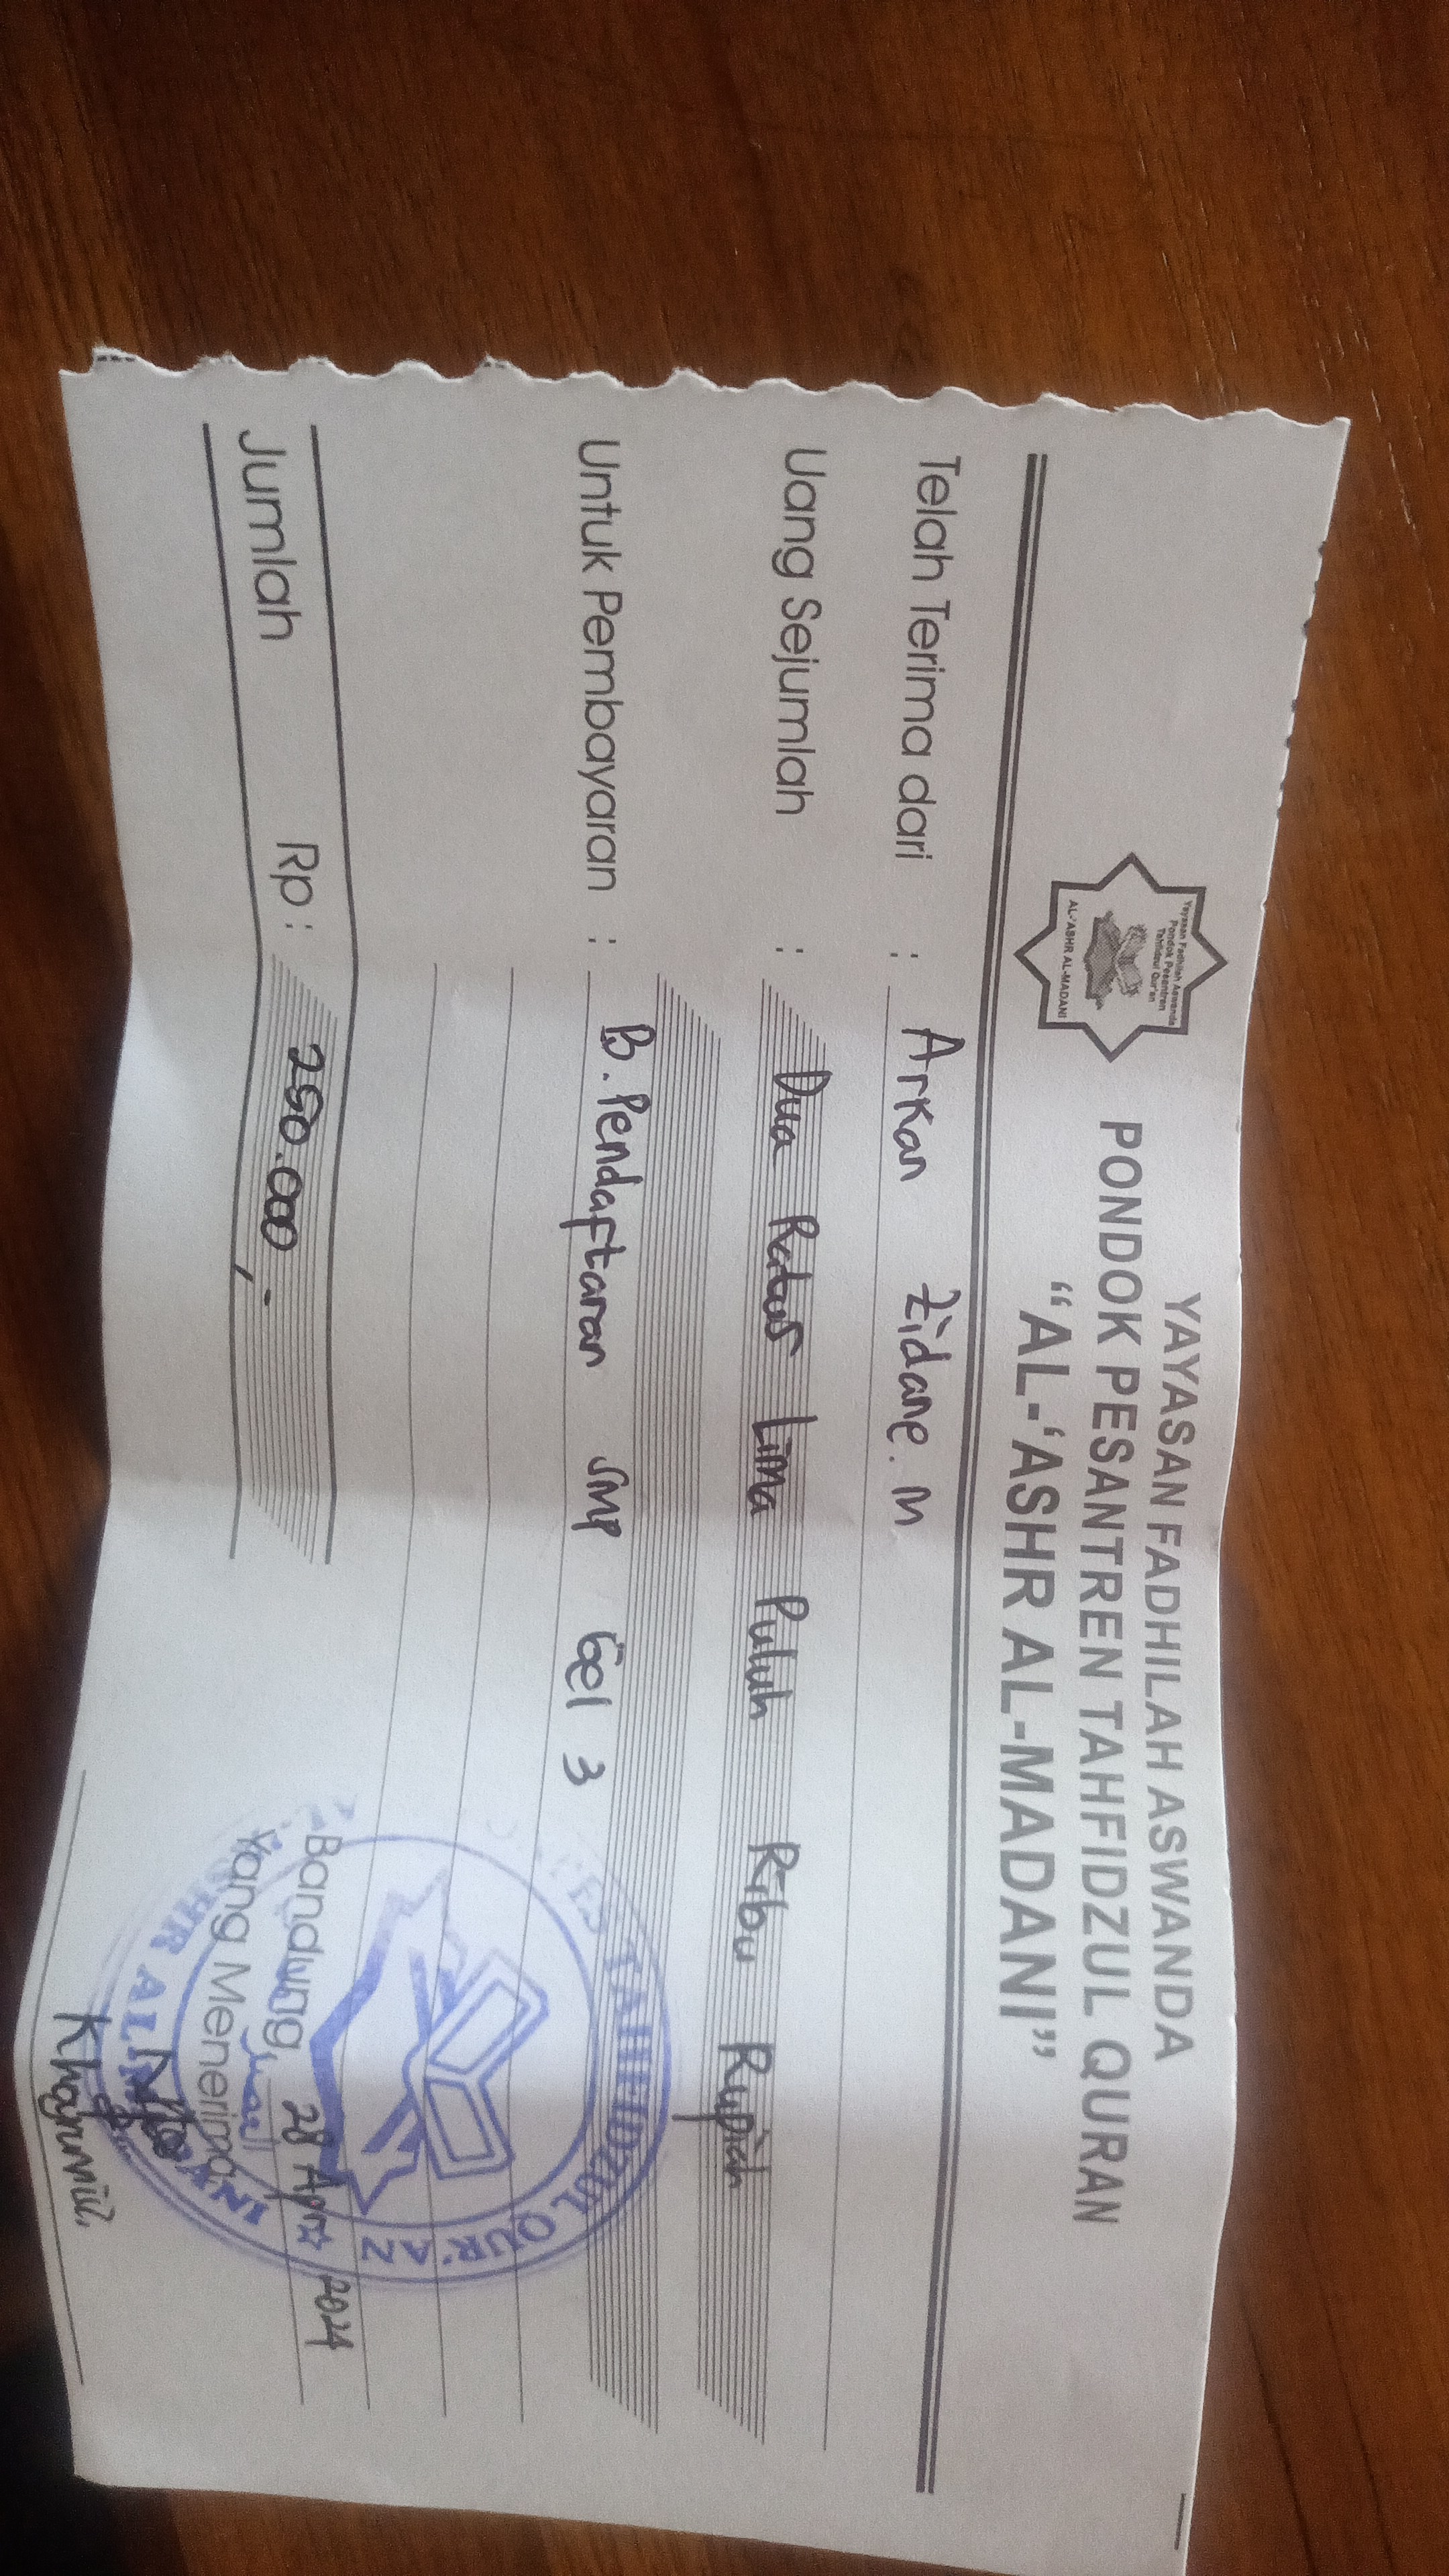 Yayasan Fadhilah Aswanda
Pondok Pesantren
Tahfidzul Qur'an
AL-'ASHR AL-MADANI
YAYASAN FADHILAH ASWANDA
PONDOK PESANTREN TAHFIDZUL QURAN
“AL-‘ASHR AL-MADANI”
Telah Terima dari : Arkan Zidane. M
Uang Sejumlah : Dua Ratus Lima Puluh Ribu Rupiah
Untuk Pembayaran : B. Pendaftaran SMP Gel 3
Jumlah Rp : 250.000,-
Bandung, 28 April 2024
Yang Menerima
TAHFIDZUL QUR'AN